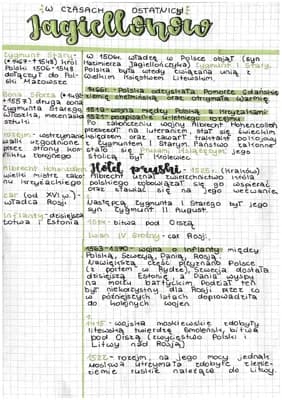 W CZASACH OSTATNICH
Jagiellonów
Zygmunt Stary-
(*1467-†1548) król
Polski 1506-1548
dołączył do Pol-
ski Mazowsze
Bona Sforza -
†1557) druga żona
Zygmunta Starego
Włoszka, mecenaska
sztuki
rozejm- wstrzymanie
walki uzgodnione
przez strony kon-
fliktu zbrojnego
Albrecht Hohenzollern
wielki mistrz zako-
nu krzyżackiego
car (od XVI w.)-
władca Rosji
Inflanty- dzisiejsza
Łotwa i Estonia
W 1506r. władzę w Polsce objął (syn
Kazimierza Jagiellończyka) Zygmunt I Stary.
Polska była wtedy związana unią z
Wielkim Księstwem Litewskim.
1466r- Polska odzyskała Pomorze Gdańskie
ziemię chełmińską oraz otrzymała Warmię
1519- wojna między Polską a Krzyżakami
1521- podpisanie 4-letniego rozejmu
Po zakończeniu wojny Albrecht Hohenzollern
przeszedł na luteranizm, stał się świeckim
księciem oraz zawarł traktat pokojowy
z Zygmuntem I Starym. Państwo zakonne
stało się Prusami Książęcymi jego
stolicą był Królewiec
Hołd pruski - 1525r. (Kraków)
uznał zwierzchnictwo króla
polskiego zobowiązał się go wspierać
oraz stawiać się na jego wezwanie
Następcą Zygmunta I Starego był jego
syn Zygmunt II August.
1514 - bitwa pod Orszą
Iwan IV Groźny - car Rosji.
1563-1570 - wojna o Inflanty między
Polską, Szwecją, Danią, Rosją.
Największą część przyznano Polsce
(z portem w Rydze), Szwecja dostała
dzisiejszą Estonię, a Dania wyspy
na morzu bałtyckim. Podział ten
był niekorzystny dla Rosji przez co
w późniejszych latach doprowadziła
do kolejnych wojen.
- wojska moskiewskie zdobyły
litewską twierdzę Smoleńsk, bitwa
pod Orszą (zwycięstwo Polski i
Litwy nad Rosją)
1522- rozejm, na jego mocy jednak
Moskwa utrzymała zdobyte ziemie-
ziemie ruskie należące do Litwy.